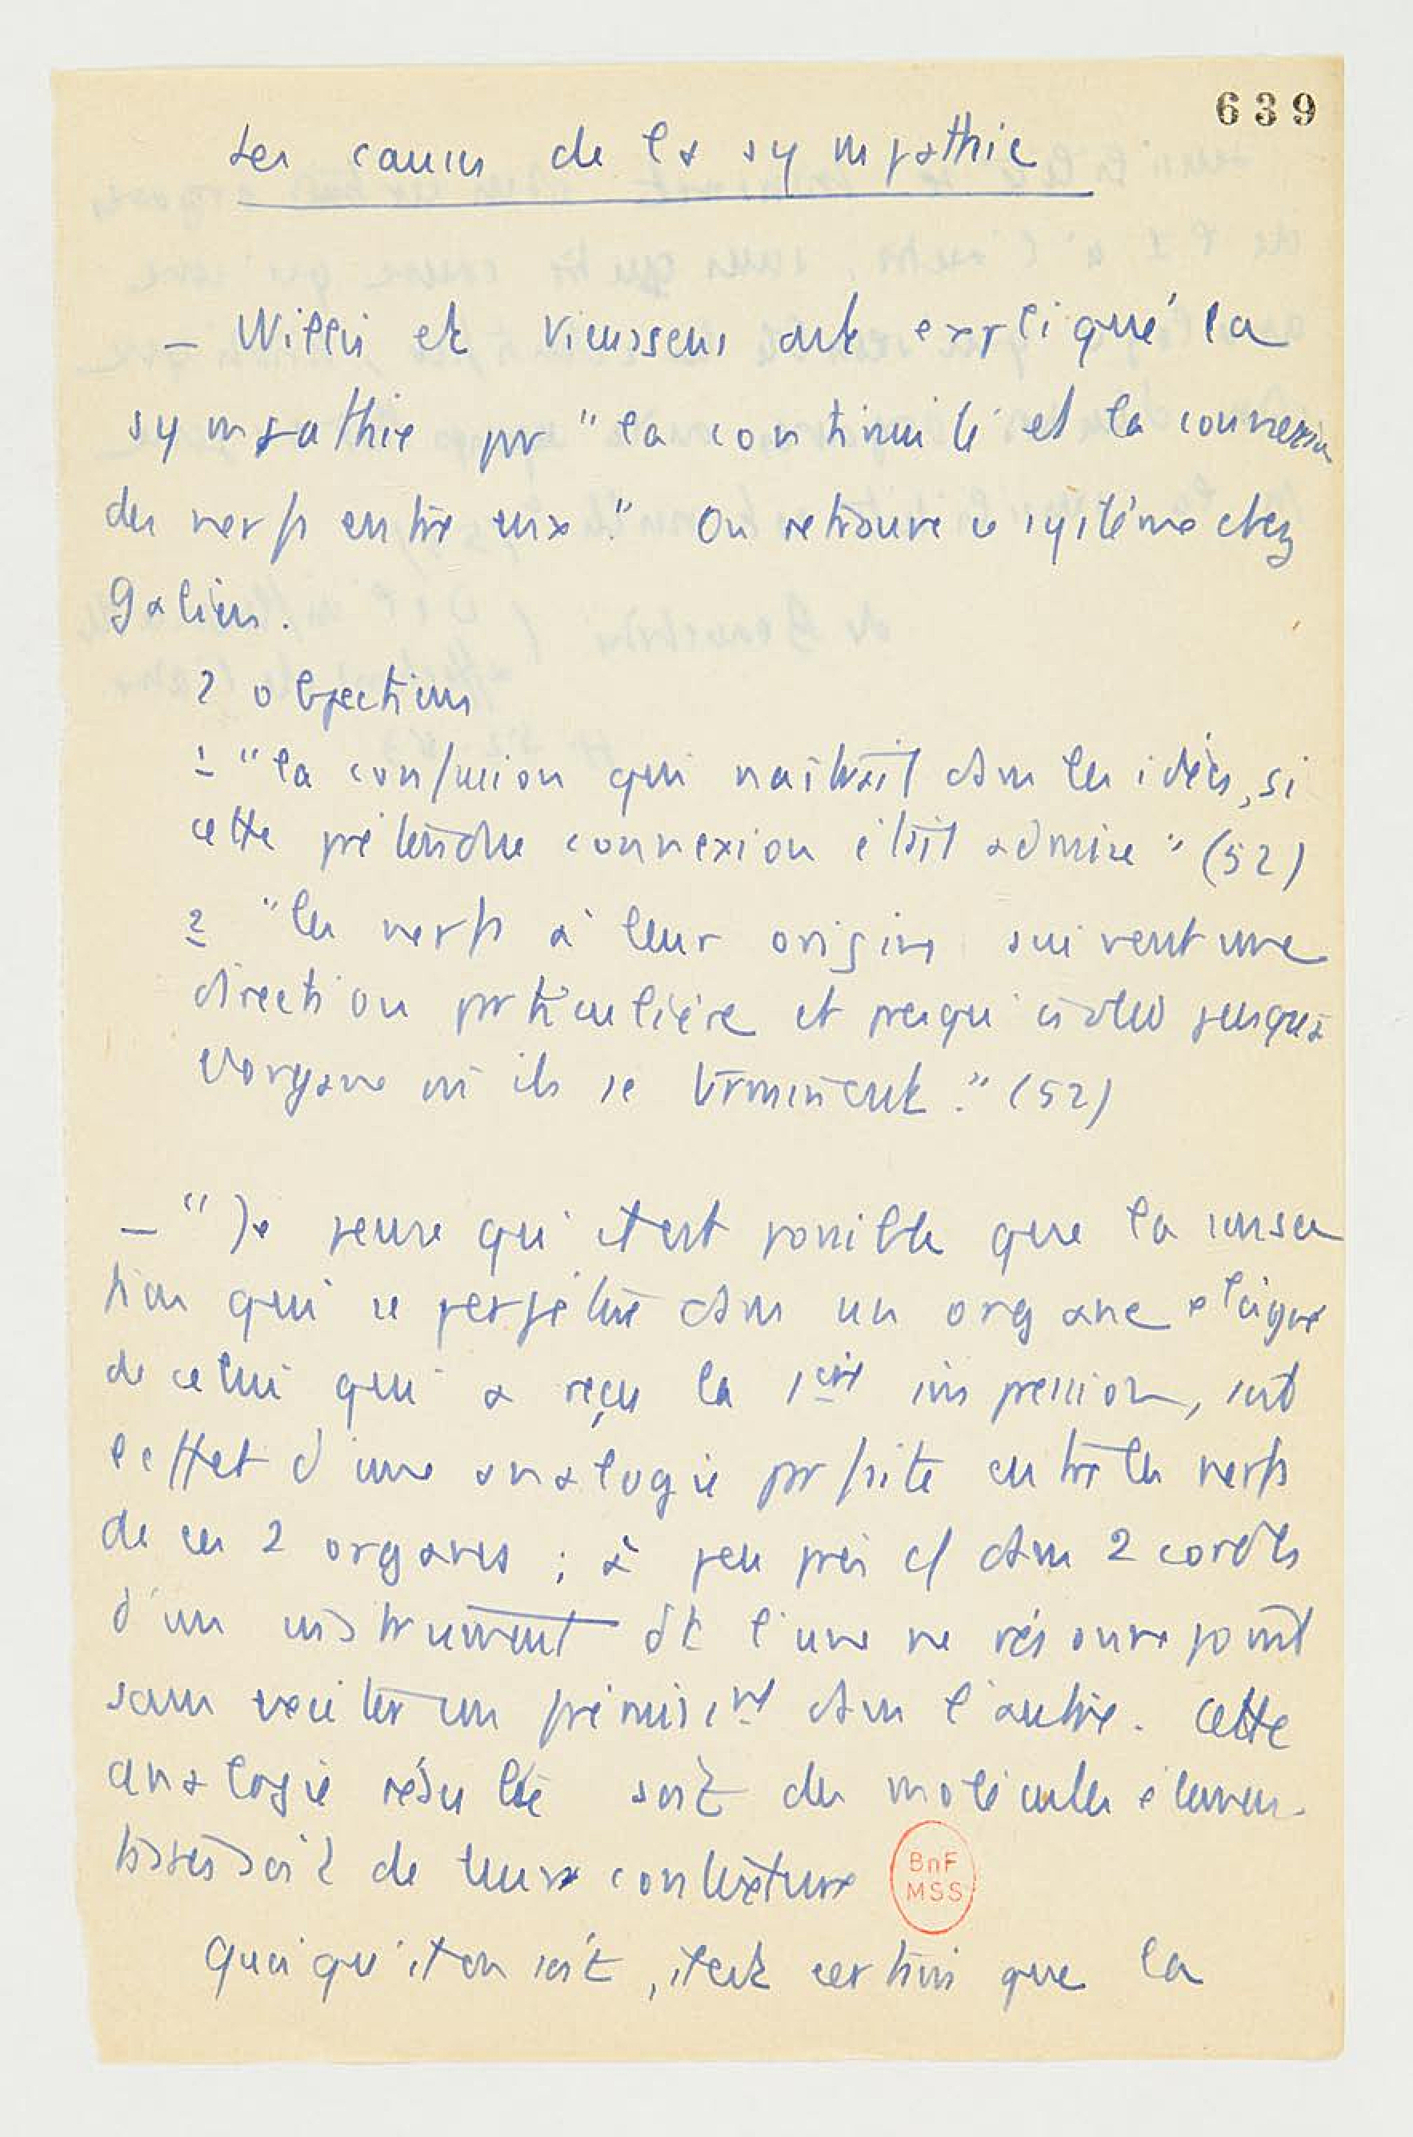 639
Les causes de la sympathie
– Willis et Vieussens ont expliqué la
sympathie par "la continuité et la connexion
des nerfs entre eux". On retrouve ce système chez
Galien.
2 objections
1 "la confusion qui naîtrait dans les idées, si
cette prétendue connexion était admise" (52)
2 "les nerfs à leur origine suivent une
direction particulière et presqu'isolée jusqu'à
l'organe où ils se terminent." (52)
– "Je pense qu'il est possible que la sensa
tion qui se perpétue dans un organe éloigné
de celui qui a reçu la 1ère impression, soit
l'effet d'une analogie parfaite entre les nerfs
de ces 2 organes ; à peu près c/ dans 2 cordes
d'un instrument dt l'une ne résonne point
sans exciter un frémismt dans l'autre. Cette
analogie résulte soit des molécules élémen
taires soit de leur contexture
BnF
MSS
Quoiqu'il en soit, il est certain que la